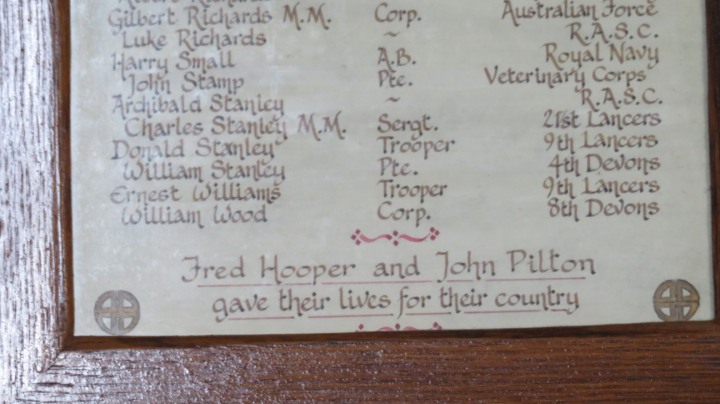 Gilbert Richards M.M. Corp. Australian Force
Luke Richards ~ R.A.S.C.
Harry Small A.B. Royal Navy
John Stamp Pte. Veterinary Corps
Archibald Stanley ~ R.A.S.C.
Charles Stanley M.M. Sergt. 21st Lancers
Donald Stanley Trooper 9th Lancers
William Stanley Pte. 4th Devons
Ernest Williams Trooper 9th Lancers
William Wood Corp. 8th Devons
Fred Hooper and John Pilton
gave their lives for their country